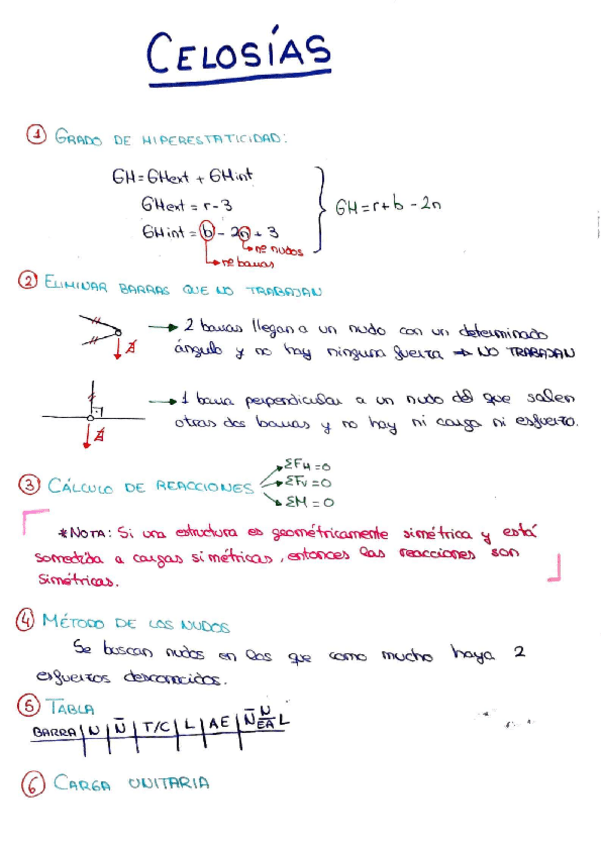 CELOSÍAS
① GRADO DE HIPERESTATICIDAD:
GH = GHext + GHint
GHext = r - 3
GHint = b - 2n + 3
GH = r + b - 2n
nº nudos
nº barras
② ELIMINAR BARRAS QUE NO TRABAJAN
2 barras llegan a un nudo con un determinado
ángulo y no hay ninguna fuerza → NO TRABAJAN
1 barra perpendicular a un nudo del que salen
otras dos barras y no hay ni carga ni esfuerzo.
③ CÁLCULO DE REACCIONES
ΣFH = 0
ΣFV = 0
ΣM = 0
*NOTA: Si una estructura es geométricamente simétrica y está
sometida a cargas simétricas, entonces las reacciones son
simétricas.
④ MÉTODO DE LOS NUDOS
Se buscan nudos en los que como mucho haya 2
esfuerzos desconocidos.
⑤ TABLA
BARRA | N | N̄ | T/C | L | AE | N̄ N/EA L
⑥ CARGA UNITARIA